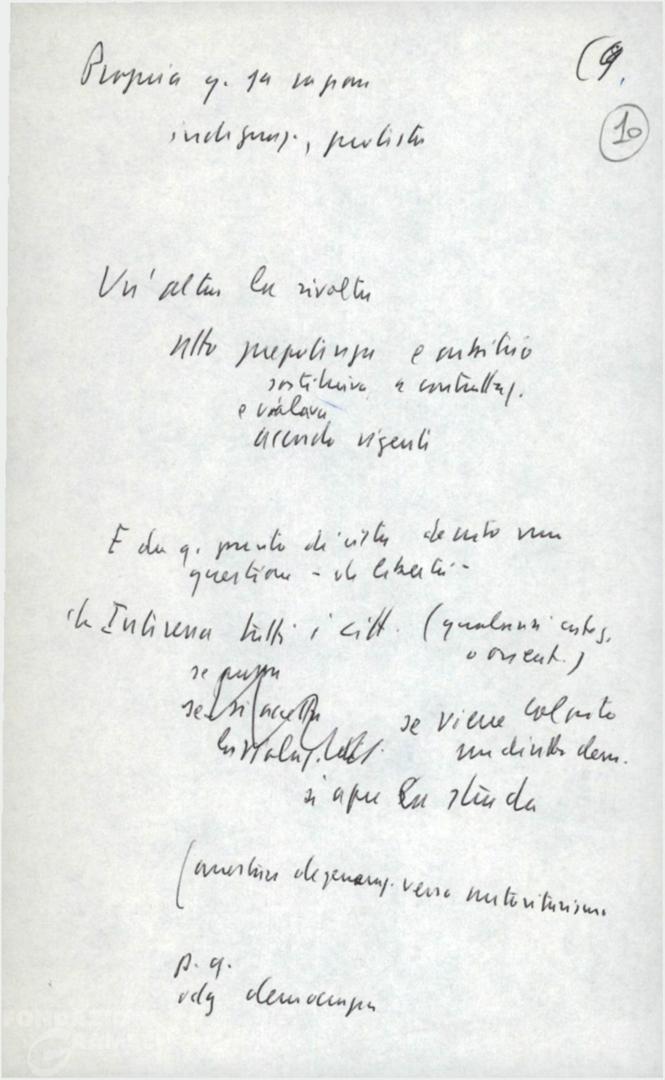 (9.
10
Proprio q. fa
indignaz., protesta
Un'altra la rivolta
atto prepotenza e arbitrio
sostituiva a contrattaz.
e violava
accordo vigenti
E da q. punto di vista diventa una
questione - di libertà -
ch Interessa tutti i citt. (qualunque categ.
o orient.)
se passa
se si accetta
la violaz.
se viene colpito
un diritto dem.
si apre la strada
(a degeneraz. verso autoritarismo
p. q.
odg democrazia